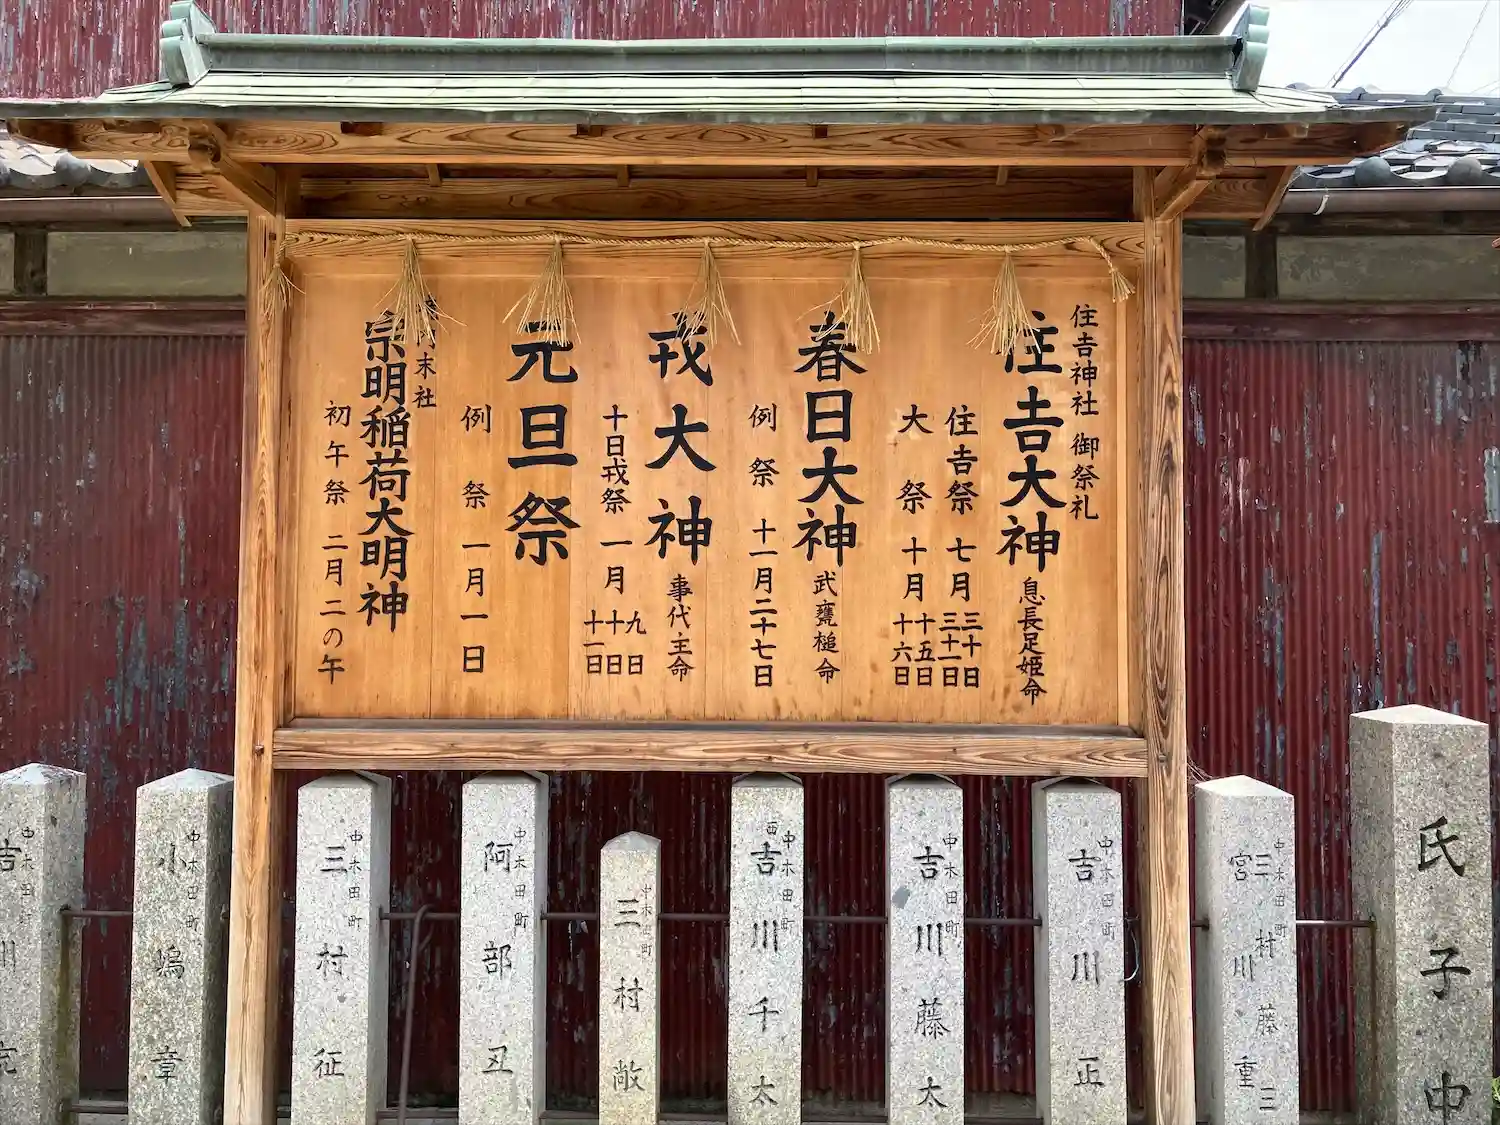 住吉神社 御祭礼
住吉大神 息長足姫命
住吉祭 七月 三十日 三十一日
大祭 十月 十五日 十六日
春日大神 武甕槌命
例祭 十一月二十七日
戎大神 事代主命
十日戎祭 一月 九日 十日 十一日
元旦祭
例祭 一月一日
末社
宗明稲荷大明神
初午祭 二月二の午
氏子中
中木田町
宮川藤重
三村 三
中木田町
吉川正
中木田町
吉川藤太
中木田町
西吉川千太
中木田町
三村敞
中木田町
阿部丑
中木田町
三村征
中木田町
小嶋章
中木田町
吉川